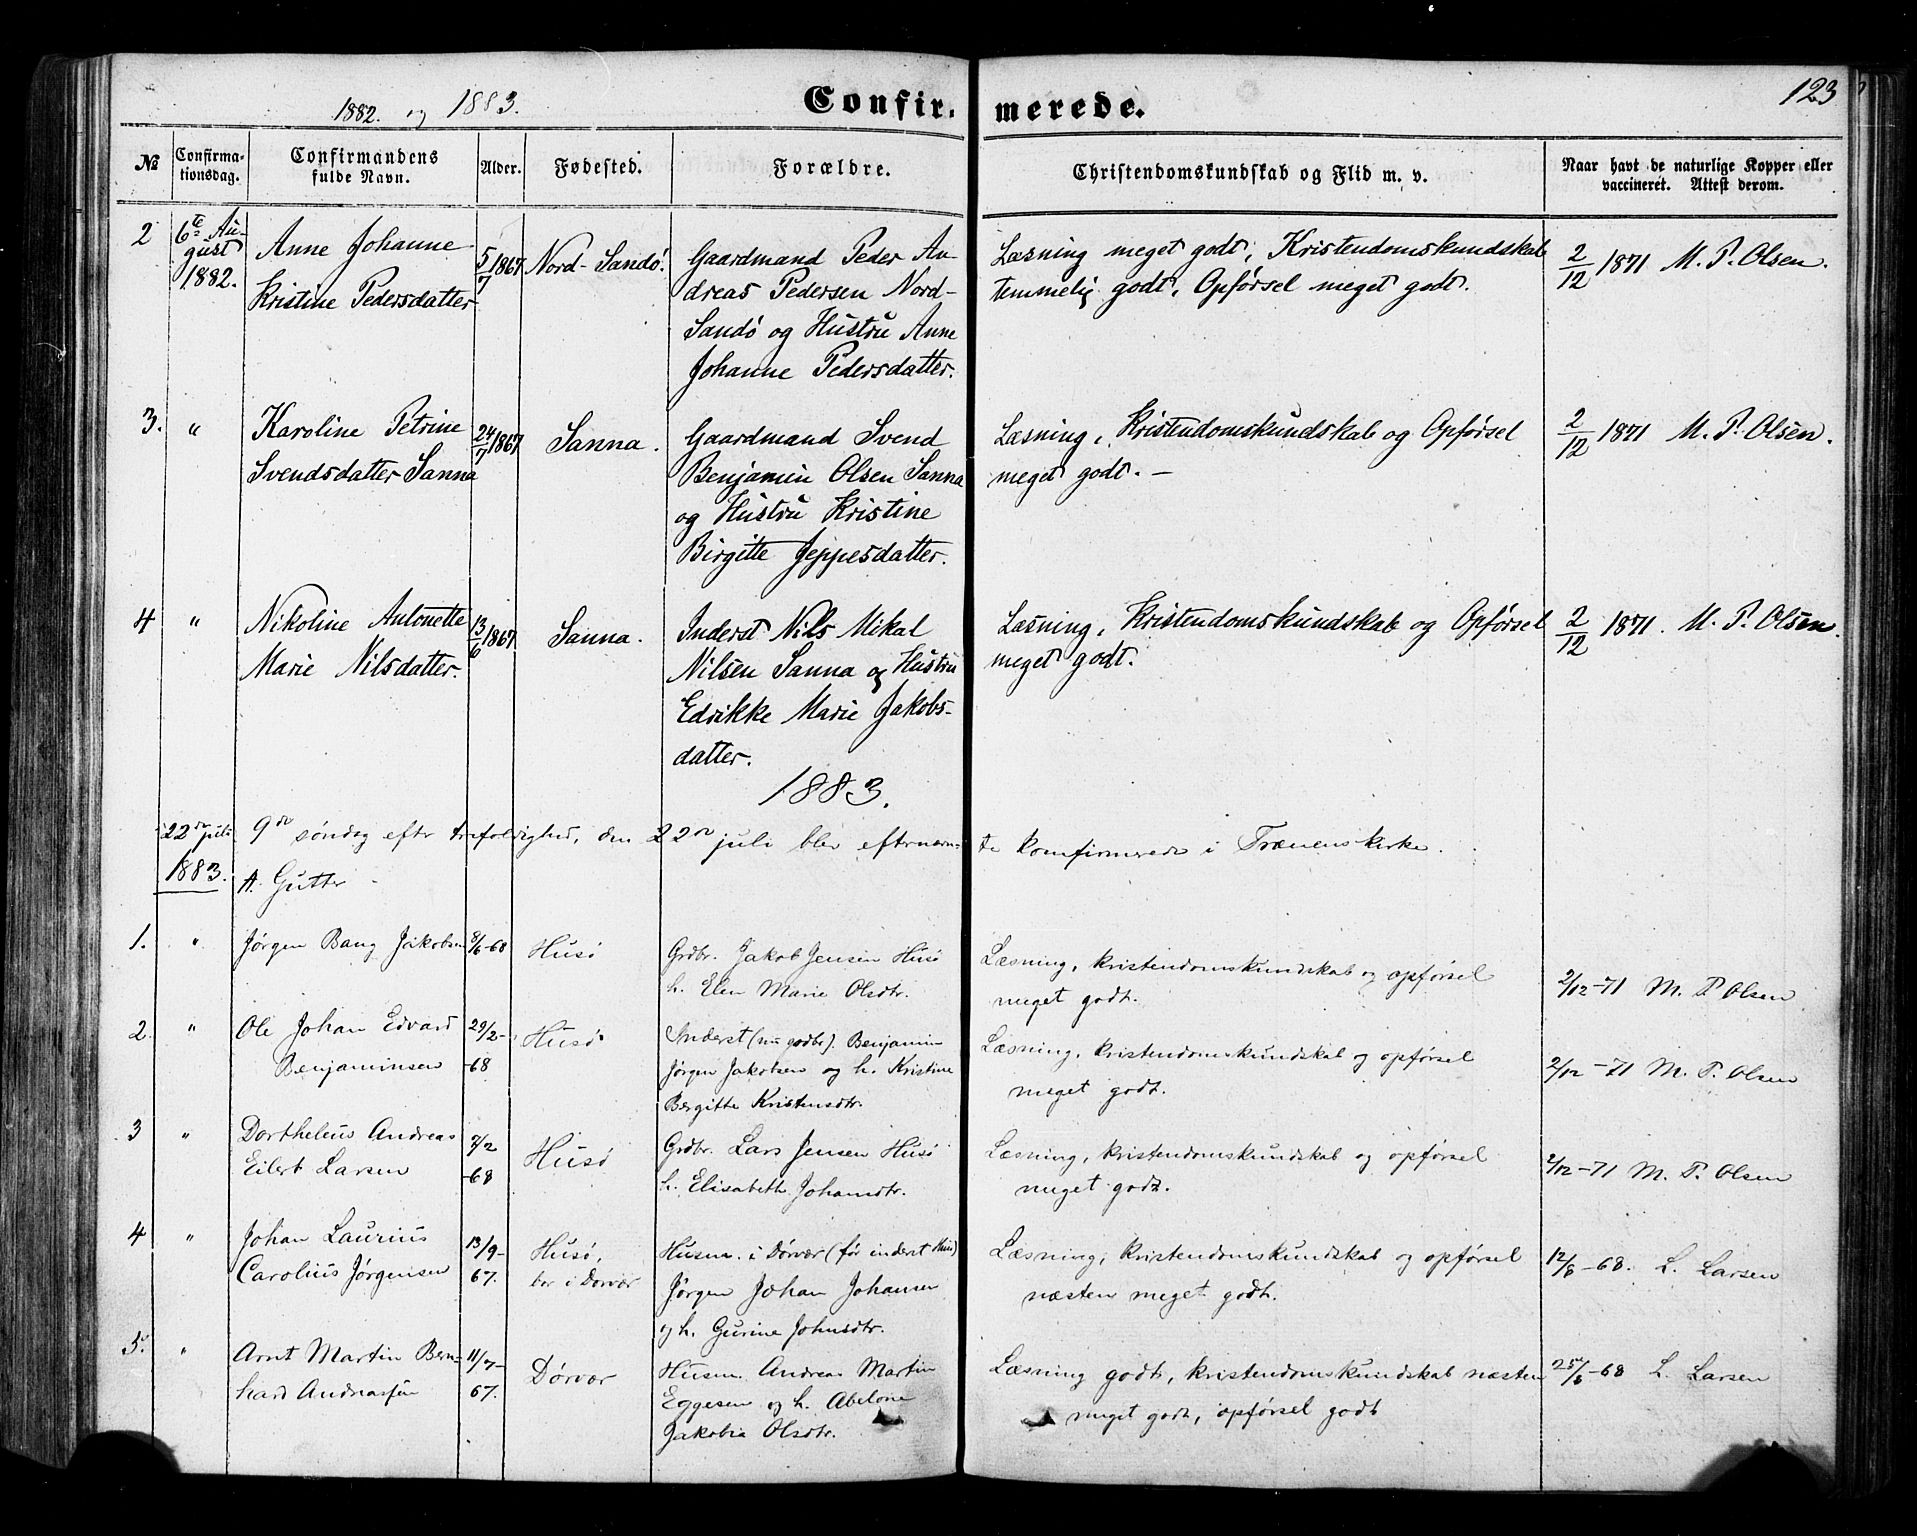 1882. og 1883.
Confirmerede.
123
No
Confirmationsdag.
Confirmandens fulde Navn.
Alder.
Fødested.
Forældre.
Christendomskundskab og Flid m. v.
Naar havt de naturlige Kopper eller vaccineret. Attest derom.
2
6te August 1882.
Anne Johanne
Kristine Pedersdatter
5/7 1867
Nord-Sandö.
Gaardmand Peder An
dreas Pedersen Nord-
Sandö og Hustru Anne
Johanne Pedersdatter.
Læsning meget godt, Kristendomskundskab
temmelig godt, Opförsel meget godt.
2/12 1871 M. P. Olsen.
3. "
Karoline Petrine
Svendsdatter Sanna
24/7 1867
Sanna.
Gaardmand Svend
Benjamin Olsen Sanna
og Hustru Kristine
Birgitte Jeppesdatter.
Læsning, Kristendomskundskab og Opförsel
meget godt. —
2/12 1871 M. P. Olsen.
4 "
Nikoline Antonette
Marie Nilsdatter.
13/6 1867
Sanna.
Inderst Nils Mikal
Nilsen Sanna og Hustru
Edrikke Marie Jakobs-
datter.
Læsning, Kristendomskundskab og Opförsel
meget godt.
2/12 1871. M. P. Olsen.
1883.
22de juli 1883.
9de søndag eftr trefoldighed, den 22de juli blev efternævn-
te komfirmerede i Trænens kirke.
A. Gutter
1. "
Jørgen Bang Jakobsen
8/6-68
Husø
Grdbr. Jakob Jensen Husø
h. Elen Marie Olsdtr.
Læsning, kristendomskundskab og opførsel
meget godt.
2/12-71 M. P Olsen
2. "
Ole Johan Edvard
Benjaminsen
29/2-
-68
Husø
Inderst (nu gdbr). Benjamin
Jørgen Jakobsen og h. Kristine
Bergitte Kristensdtr.
Læsning, kristendomskundskab og opførsel
meget godt.
2/12-71 M. P. Olsen
3 "
Dortheleus Andreas
Eilert Larsen
2/2
-68
Husø
Grdbr. Lars Jensen Husø
h. Elisabeth Johansdtr.
Læsning, kristendomskundskab og opførsel
meget godt.
2/12-71 M. P. Olsen
4 "
Johan Laurius
Carolius Jørgensen
13/9-
67.
Husø,
bor i Dørvær
Husm. i Dørvær (før inderst Husø)
Jørgen Johan Johansen
og h. Gurine Johnsdtr.
Læsning, kristendomskundskab og opførsel
næsten meget godt.
12/8-68. L. Larsen
5. "
Arnt Martin Bern-
hard Andreassen
11/7-
67.
Dørvær
Husm. Andreas Martin
Eggesen og h. Abelone
Jakobia Olsdtr.
Læsning godt, kristendomskundskab næsten
meget godt, opførsel godt
25/8-68 L. Larsen